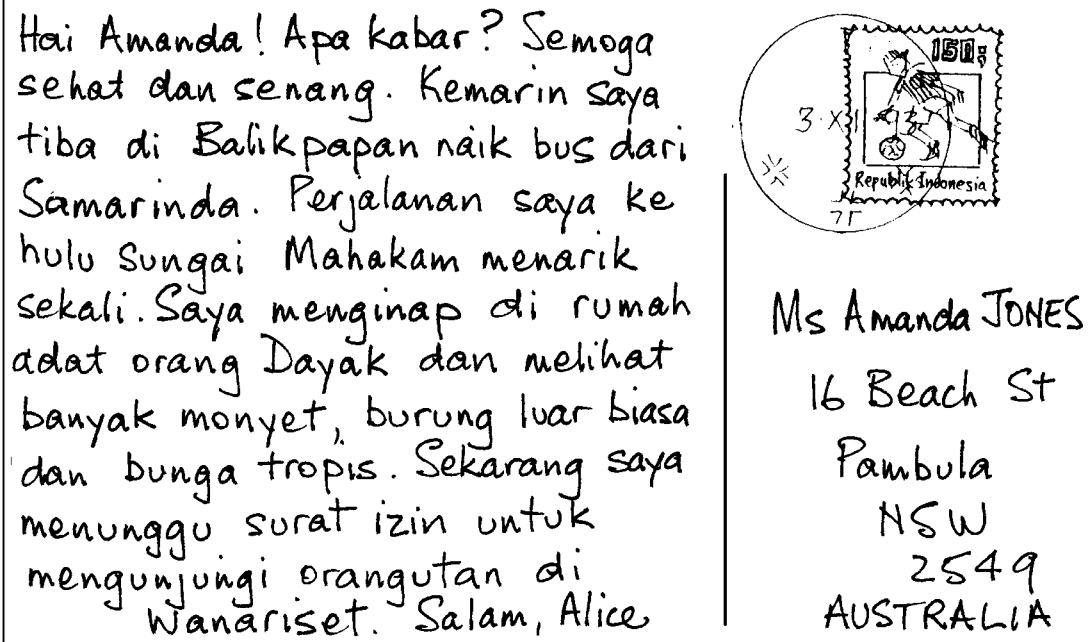 Hai Amanda! Apa kabar? Semoga
sehat dan senang. Kemarin saya
tiba di Balikpapan naik bus dari
Samarinda. Perjalanan saya ke
hulu Sungai Mahakam menarik
sekali. Saya menginap di rumah
adat orang Dayak dan melihat
banyak monyet, burung luar biasa
dan bunga tropis. Sekarang saya
menunggu surat izin untuk
mengunjungi orangutan di
Wanariset. Salam, Alice
150;
3.X
Republik Indonesia
Ms Amanda JONES
16 Beach St
Pambula
NSW
2549
AUSTRALIA